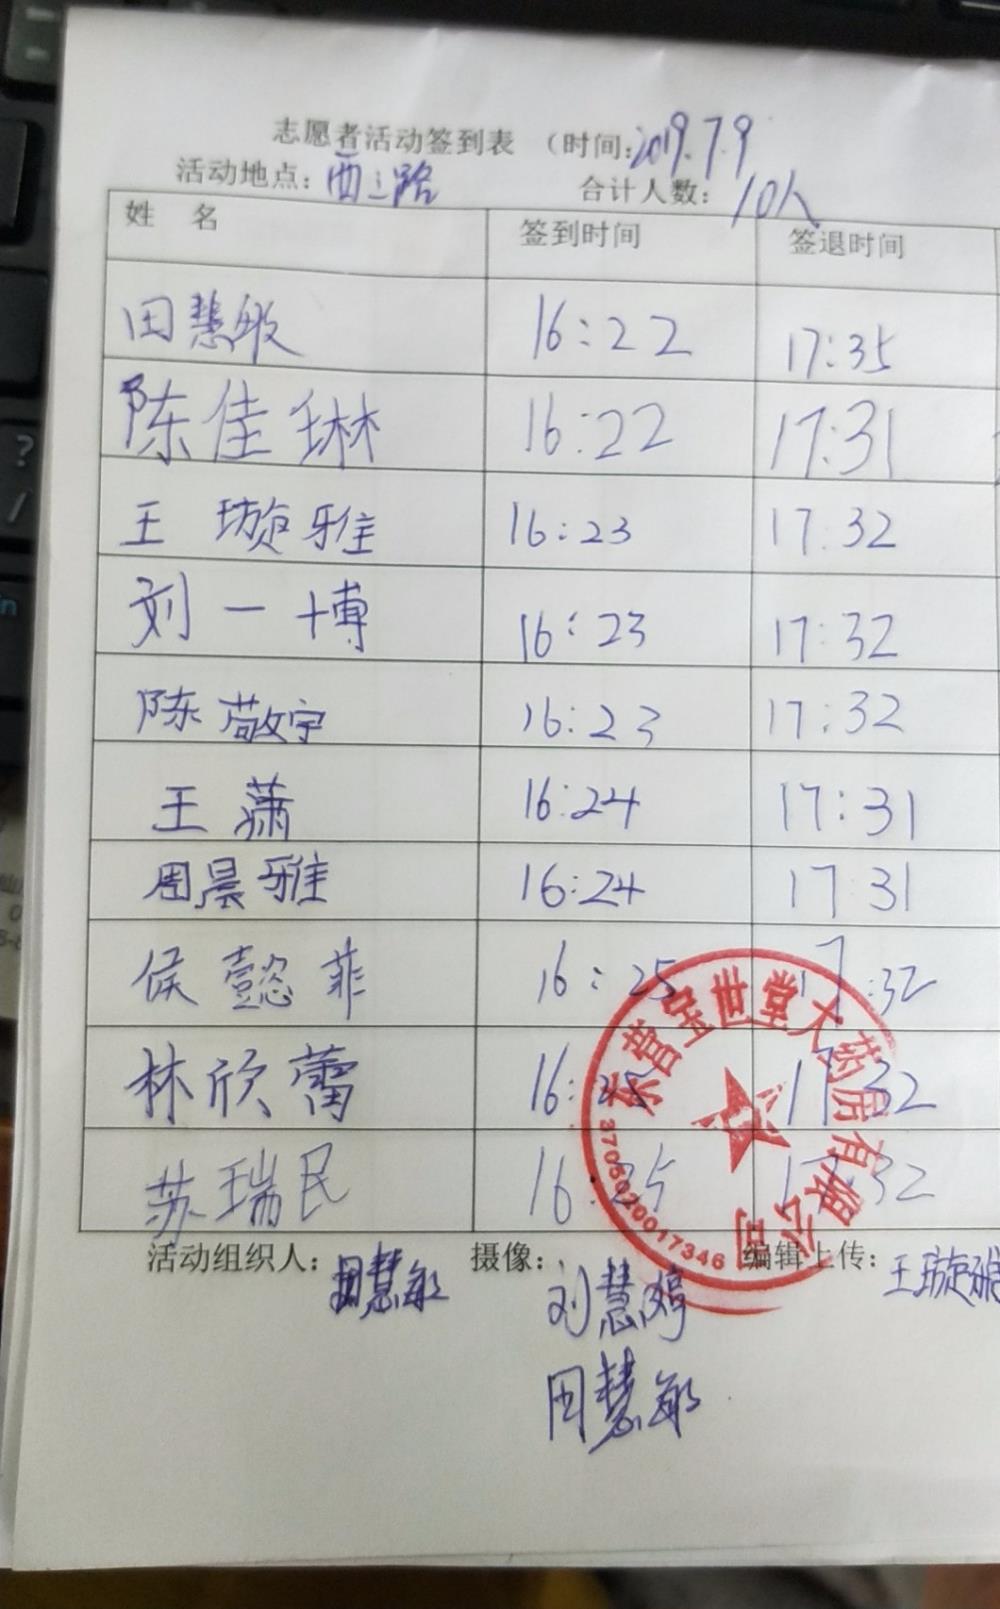 志愿者活动签到表 （时间:2019.7.9
活动地点: 西三路 合计人数: 10人
姓 名 签到时间 签退时间
田慧敏 16:22 17:35
陈佳琳 16:22 17:31
王 璇雅 16:23 17:32
刘一博 16:23 17:32
陈敬宇 16:23 17:32
王潇 16:24 17:31
周晨雅 16:24 17:31
侯懿菲 16:25 17:32
林欣蕾 16:25 17:32
苏瑞民 16:25 17:32
东营宝世堂大药房有限公司
3705020017346
活动组织人: 田慧敏 摄像: 刘慧婷 编辑上传: 王璇
田慧敏